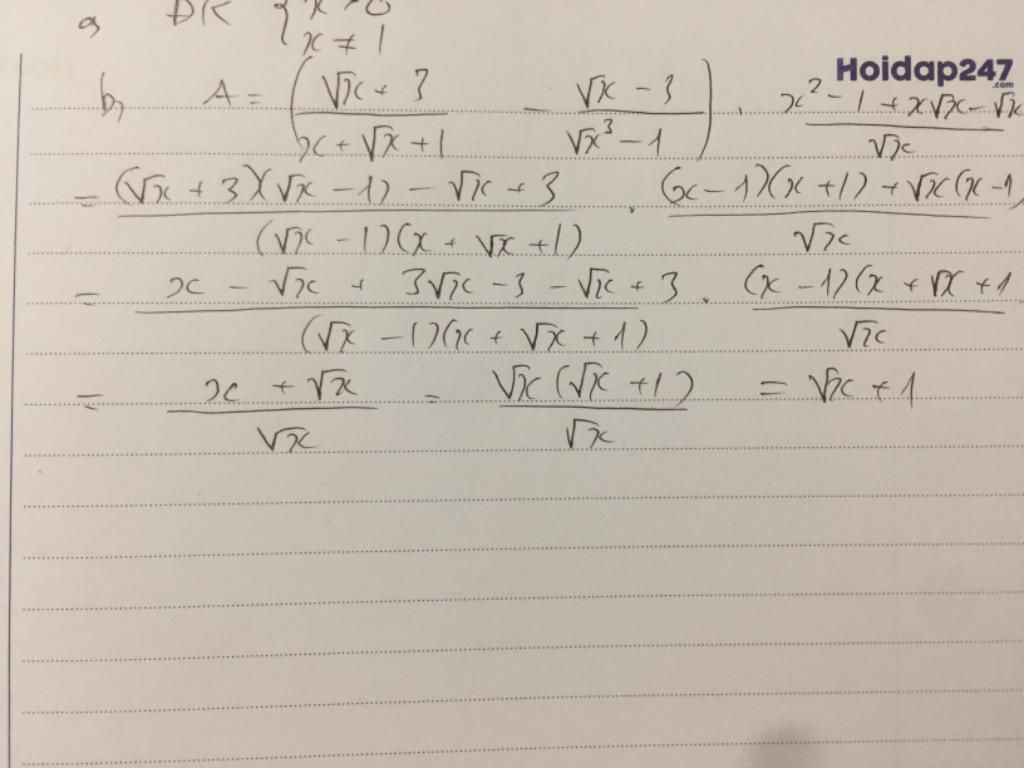 a, ĐK { x > 0
x ≠ 1
Hoidap247.com
b, A = ( (√x + 3)/(x + √x + 1) - (√x - 3)/(√x³ - 1) ) . (x² - 1 + x√x - √x)/√x
= ((√x + 3)(√x - 1) - √x + 3)/((√x - 1)(x + √x + 1)) . ((x - 1)(x + 1) + √x(x - 1)/√x
= (x - √x + 3√x - 3 - √x + 3)/((√x - 1)(x + √x + 1)) . ((x - 1)(x + √x + 1/√x
= (x + √x)/√x = (√x(√x + 1))/√x = √x + 1